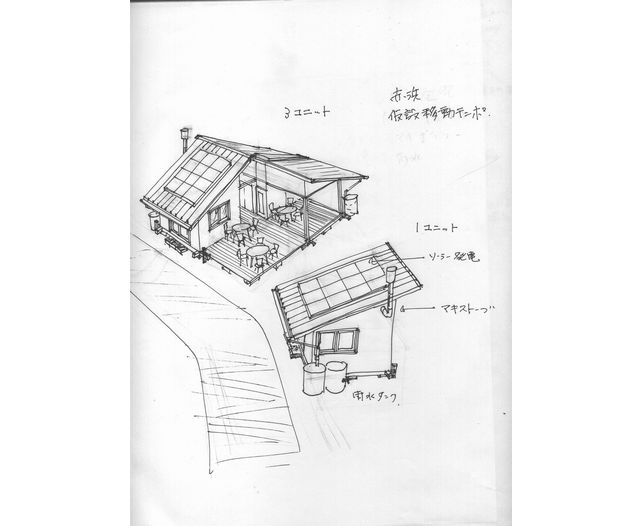 赤浜
仮設移動テンポ.
3ユニット
1ユニット
ソーラー発電
マキストーブ
雨水タンク